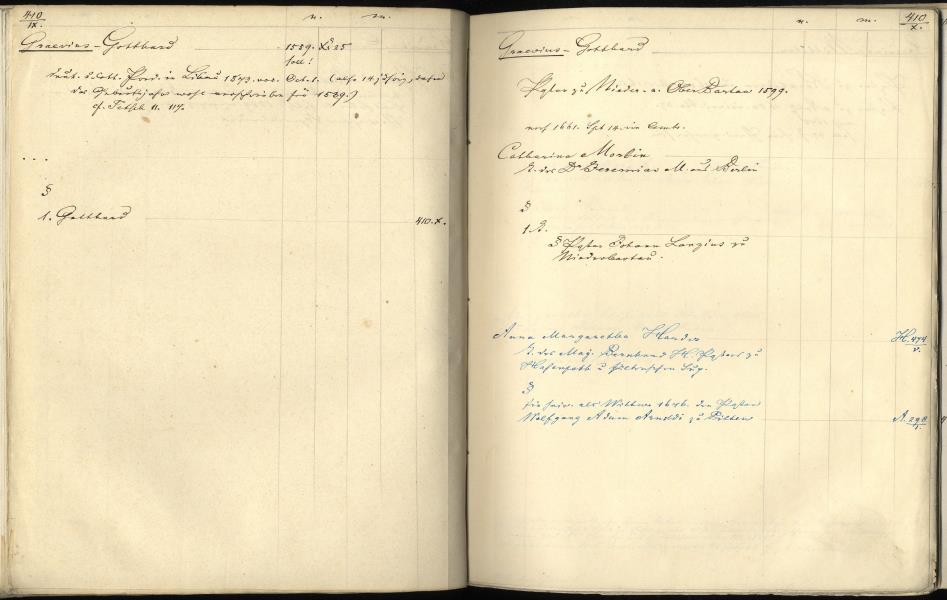 410
IX.
n. m.
Graevius - Gotthard 1589. X. 25
soll!
deut. Pred. in Libau 1543. Oct. 1. (also 14 jährig, daher
das Geburtsjahr wohl verschrieben für 1529.)
cf. Tetsch II. 117.
...
§
1. Gotthard 410. X.
n. m. 410
X.
Graevius - Gotthard
Pastor zu Nieder- u. Ober Bartau 1599.
noch 1661. Spt 14. im Amte.
Catharina Morbin
T. des Dr Jeremias M. aus Berlin
§
1 T.
§ Pastor Johann Langius zu
Niederbartau.
Anna Margaretha Harder H. 474
V.
T. des Mag. Bernhard H. Pastors zu
Hasenpoth u
§
als Wittwe 1676. den Pastor
Wolfgang Adam Arnoldi zu Pilten A. 298
1.